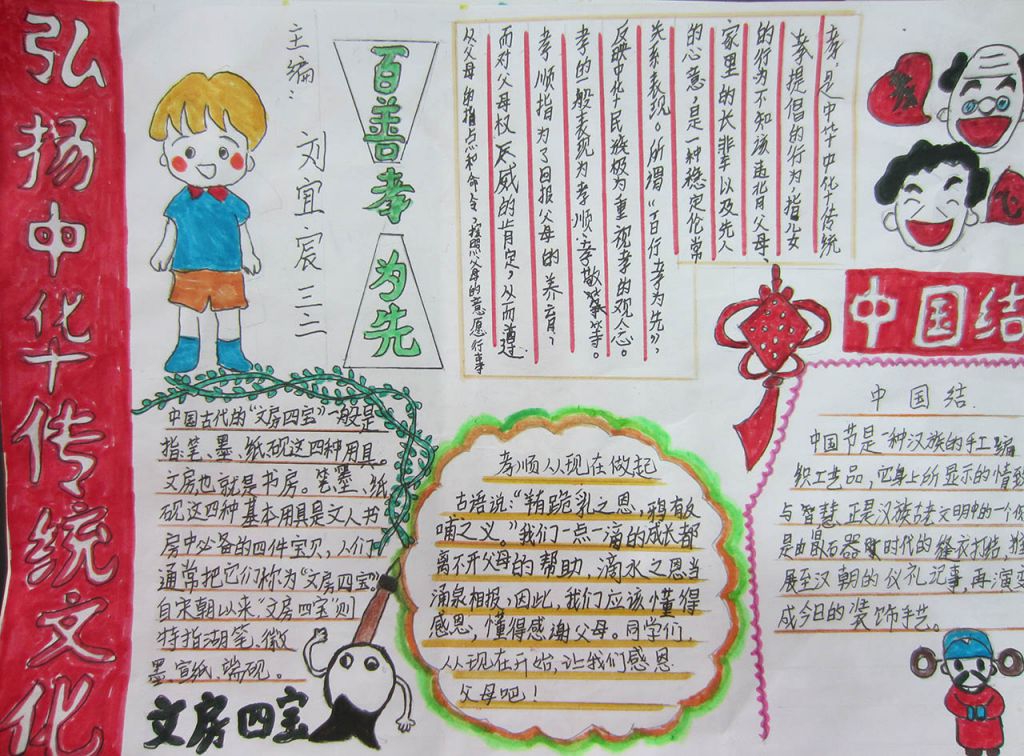 弘扬中华传统文化
主编：刘宜宸 三二
百善孝为先
孝，是中华文化传统
孝提倡的行为，指儿女
的行为不知该违背父母
家里的长辈以及先人
的心意，是一种稳定伦常
关系表现。所谓“百行孝为先”，
反映中华民族极为重视孝的观念。
孝的一般表现为孝顺、孝敬等等。
孝顺指为了回报父母的养育，
而对父母权威的肯定，从而遵
从父母的指点和命令，按照父母的意愿行事
中国结
中国古代的“文房四宝”一般是
指笔、墨、纸砚这四种用具。
文房也就是书房。笔墨、纸
砚这四种基本用具是文人书
房中必备的四件宝贝，人们
通常把它们称为“文房四宝”。
自宋朝以来，“文房四宝”则
特指湖笔、徽
墨、宣纸、端砚。
文房四宝
孝顺从现在做起
古语说：“鞫跪乳之恩，鸦有反
哺之义。”我们一点一滴的成长都
离不开父母的帮助，滴水之恩当
涌泉相报，因此，我们应该懂得
感恩，懂得感谢父母。同学们，
从现在开始，让我们感恩
父母吧！
中国结
中国节是一种汉族的手工编
织工艺品，它身上所显示的情致
与智慧正是汉族古老文明中的一个
是由旧石器时代的缝衣打结，推
展至汉朝的仪礼记事，再演变
成今日的装饰手艺。